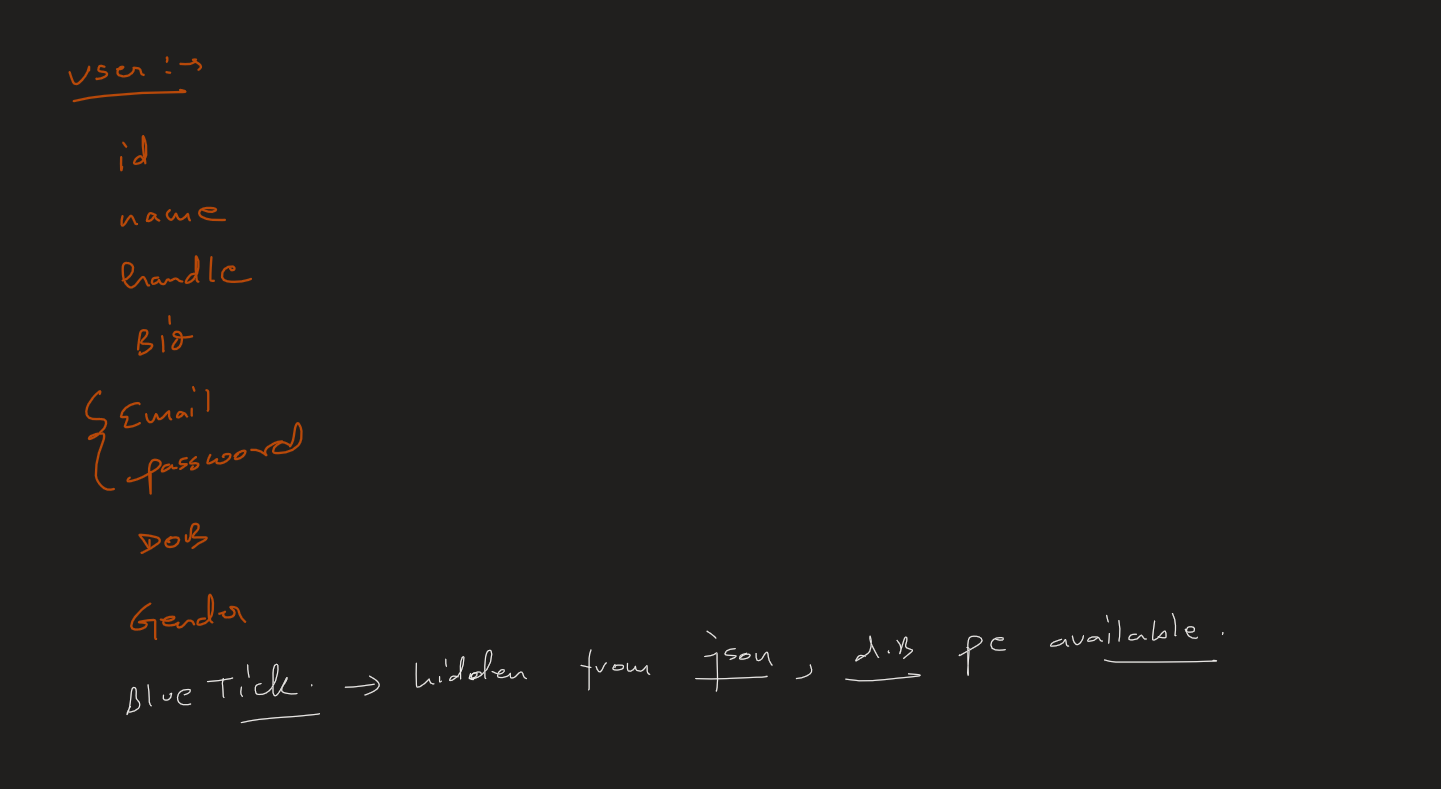 User :→
id
name
handle
Bio
Email
password
DOB
Gender
Blue Tick. → hidden from json, d.B pe available.